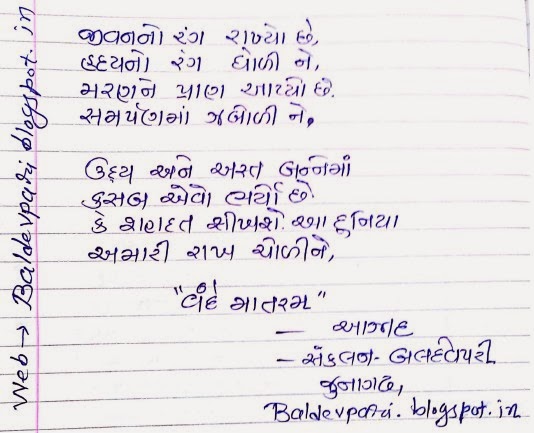 જીવનનો રંગ રાખ્યો છે,
હૃદયનો રંગ ઘોળી ને,
મરણને પ્રાણ આપ્યો છે.
સમર્પણમાં ઝબોળી ને.
ઉદય અને અસ્ત બન્નેમાં
કસબ એવો ભર્યો છે.
કે શહાદત શીખશે. આ દુનિયા
અમારી રાખ ચોળીને,
"વંદે માતરમ"
– આઝાદ
– સંકલન- બલદેવપરી
જુનાગઢ,
Baldevpari.blogspot.in
Web → Baldevpari.blogspot.in